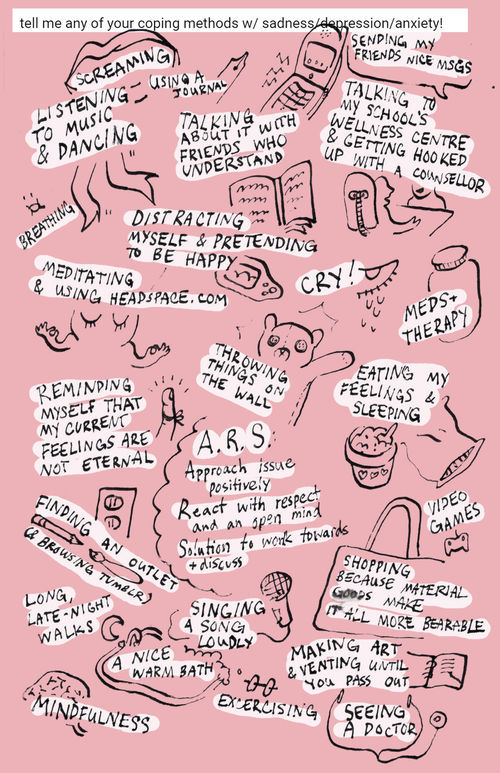 tell me any of your coping methods w/ sadness/depression/anxiety!
SCREAMING
USING A
JOURNAL
SENDING MY
FRIENDS NICE MSGS
LISTENING
TO MUSIC
& DANCING
TALKING
ABOUT IT WITH
FRIENDS WHO
UNDERSTAND
TALKING TO
MY SCHOOL'S
WELLNESS CENTRE
& GETTING HOOKED
UP WITH A COUNSELLOR
BREATHING
DISTRACTING
MYSELF & PRETENDING
TO BE HAPPY
MEDITATING
& USING HEADSPACE.COM
CRY!
MEDS+
THERAPY
THROWING
THINGS ON
THE WALL
EATING MY
FEELINGS &
SLEEPING
REMINDING
MYSELF THAT
MY CURRENT
FEELINGS ARE
NOT ETERNAL
A.R.S.
Approach issue
positively
React with respect
and an open mind
Solution to work towards
+ discuss
FINDING AN OUTLET
& BROWSING TUMBLR
VIDEO
GAMES
SHOPPING
BECAUSE MATERIAL
GOODS MAKE
IT ALL MORE BEARABLE
LONG
LATE-NIGHT
WALKS
SINGING
A SONG
LOUDLY
A NICE
WARM BATH
MAKING ART
& VENTING UNTIL
YOU PASS OUT
EXERCISING
MINDFULNESS
SEEING
A DOCTOR